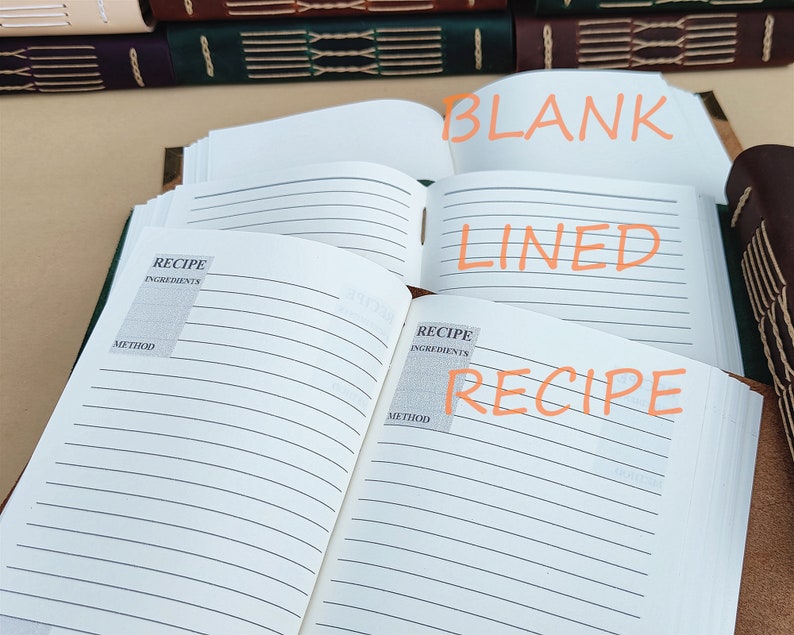 BLANK
LINED
RECIPE
RECIPE
INGREDIENTS
METHOD
RECIPE
INGREDIENTS
METHOD